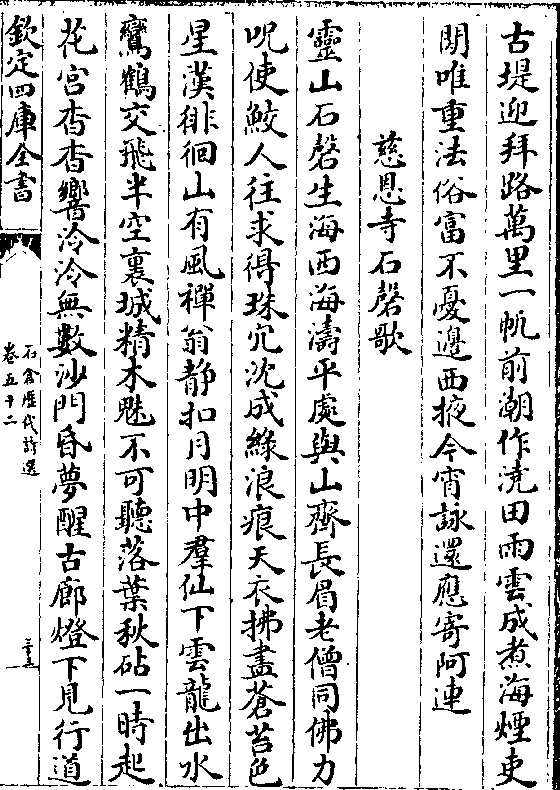 古堤迎拜路萬里一帆前潮作澆田雨雲成煮海煙吏
閒唯重法俗富不憂邊西掖今宵詠還應寄阿連
慈恩寺石磬歌
靈山石磬生海西海濤平處與山齊長眉老僧同佛力
呪使鮫人往求得珠穴沈成綠浪痕天衣拂盡蒼苔色
星漢徘徊山有風禪翁静扣月明中羣仙下雲龍出水
鸞鶴交飛半空裏城精木魅不可聽落葉秋砧一時起
花宮杳杳響泠泠無數沙門昏夢醒古廊燈下見行道
欽定四庫全書
石倉歷代詩選
卷五十二
三十五